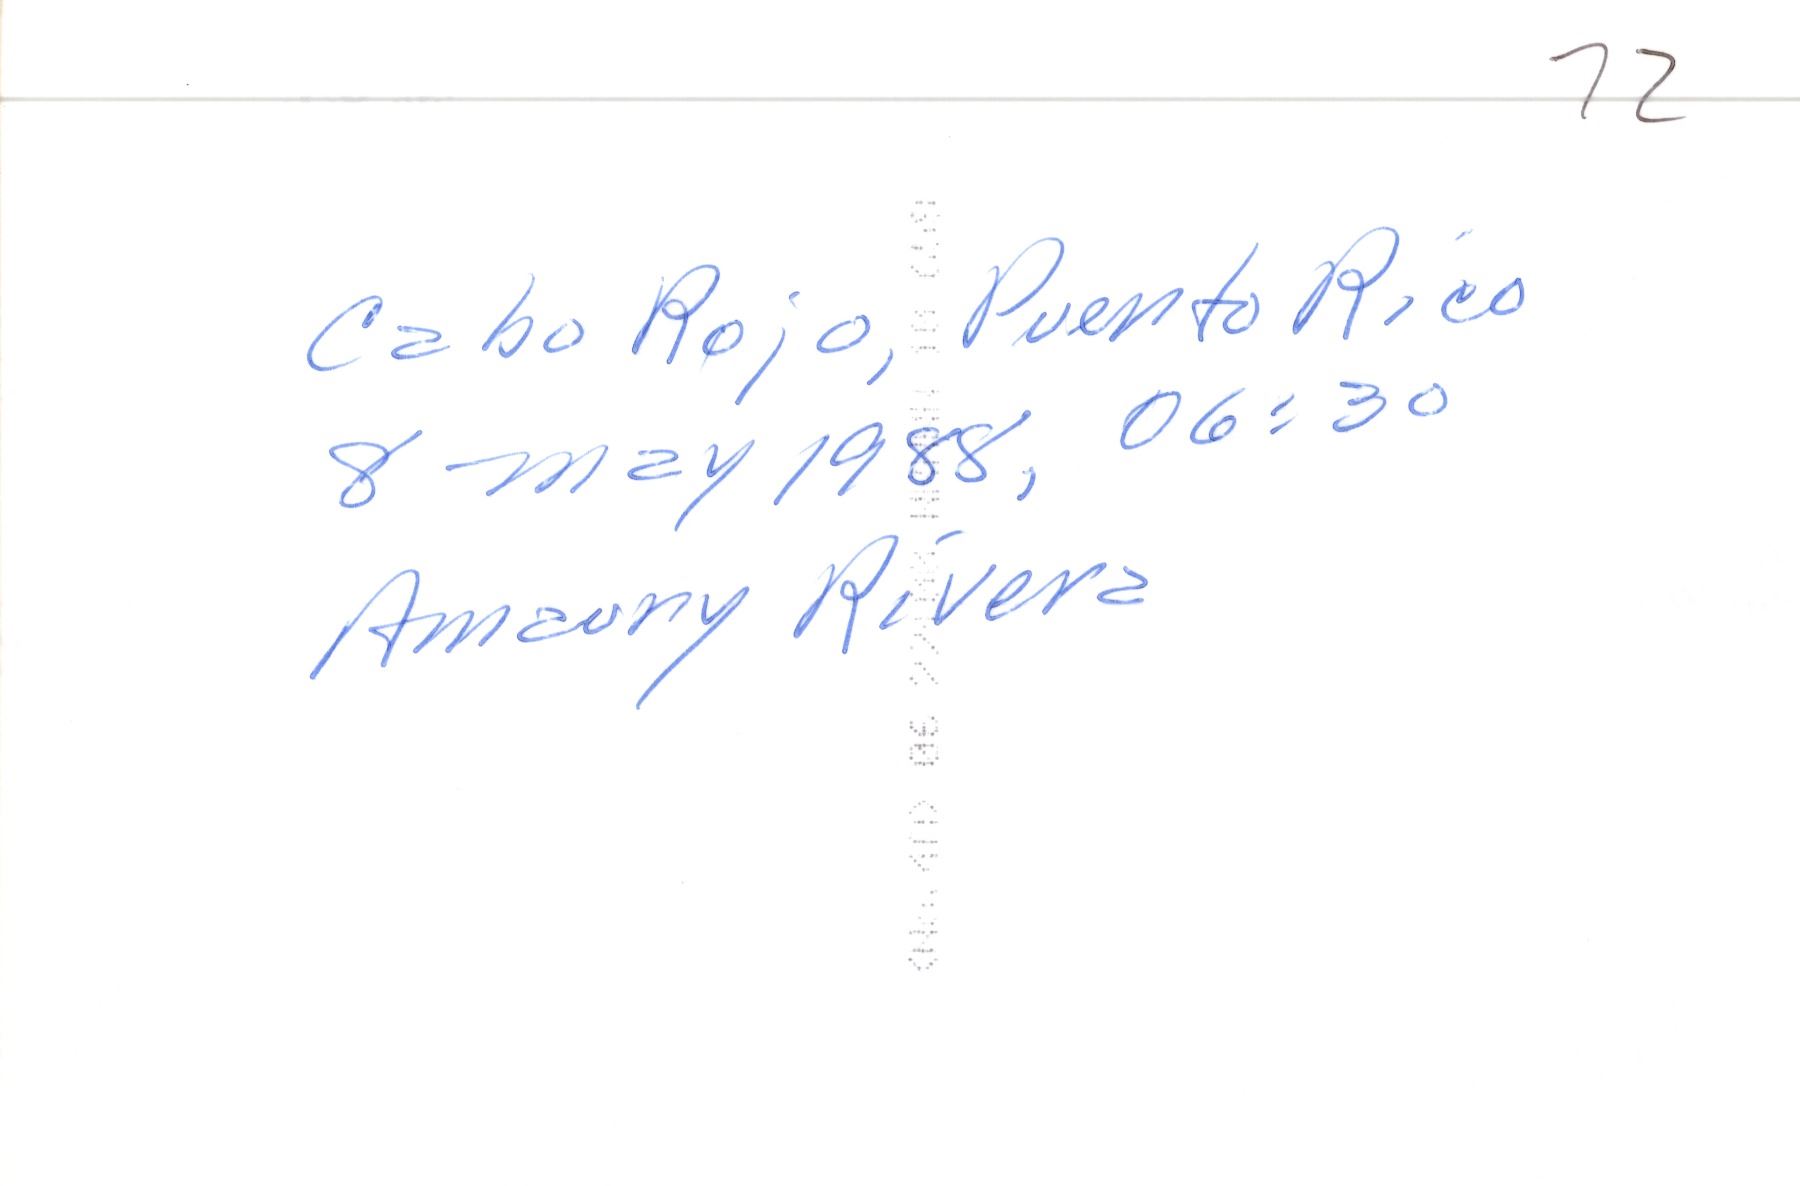 72
Cabo Rojo, Puerto Rico
8 may 1988, 06:30
Amaury Rivera